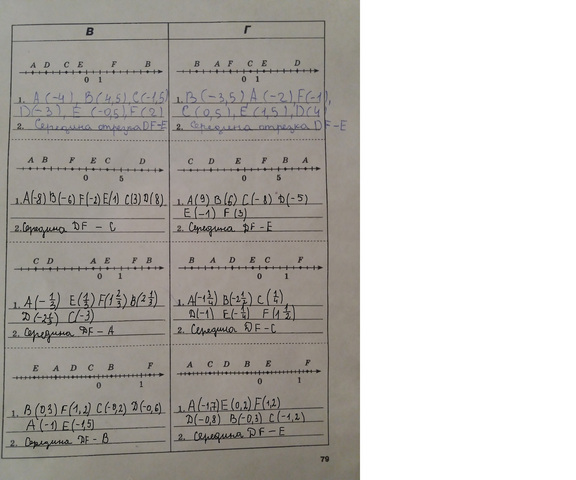 В Г
A D C E F B
0 1
1. A(-4), B(4,5), C(-1,5)
D(-3), E(-0,5), F(2)
2. Середина отрезка DF-E
B A F C E D
0 1
1. B(-3,5) A(-2), F(-1),
C(0,5), E(1,5), D(4)
2. Середина отрезка DF-E
A B F E C D
0 5
1. A(-8) B(-6) F(-2) E(1) C(3) D(8)
2. Середина DF - C
C D E F B A
0 5
1. A(9) B(6) C(-8) D(-5)
E(-1) F(3)
2. Середина DF-E
C D A E F B
0 1
1. A(-1/3) E(1/3) F(1 2/3) B(2 1/3)
D(-2 1/3) C(-3)
2. Середина DF-A
B A D E C F
0 1
1. A(-1 3/4) B(-2 1/2) C(1/4)
D(-1) E(-1/4) F(1 1/2)
2. Середина DF-C
E A D C B F
0 1
1. B(0,3) F(1,2) C(-0,2) D(-0,6)
A(-1) E(-1,5)
2. Середина DF-B
A C D B E F
0 1
1. A(-1,7) E(0,2) F(1,2)
D(-0,8) B(-0,3) C(-1,2)
2. Середина DF-E
79